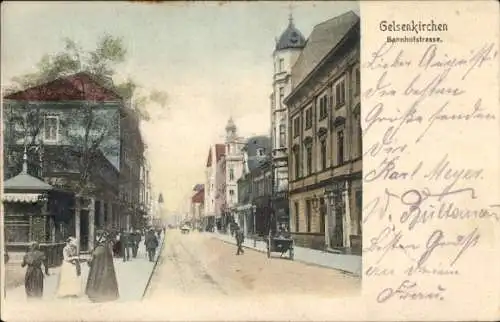 Gelsenkirchen
Bahnhofstrasse.
Lieber August!
Die besten
Grüße senden
Dir
Karl Meyer.
W.
Besten Gruß
von deiner
Frau